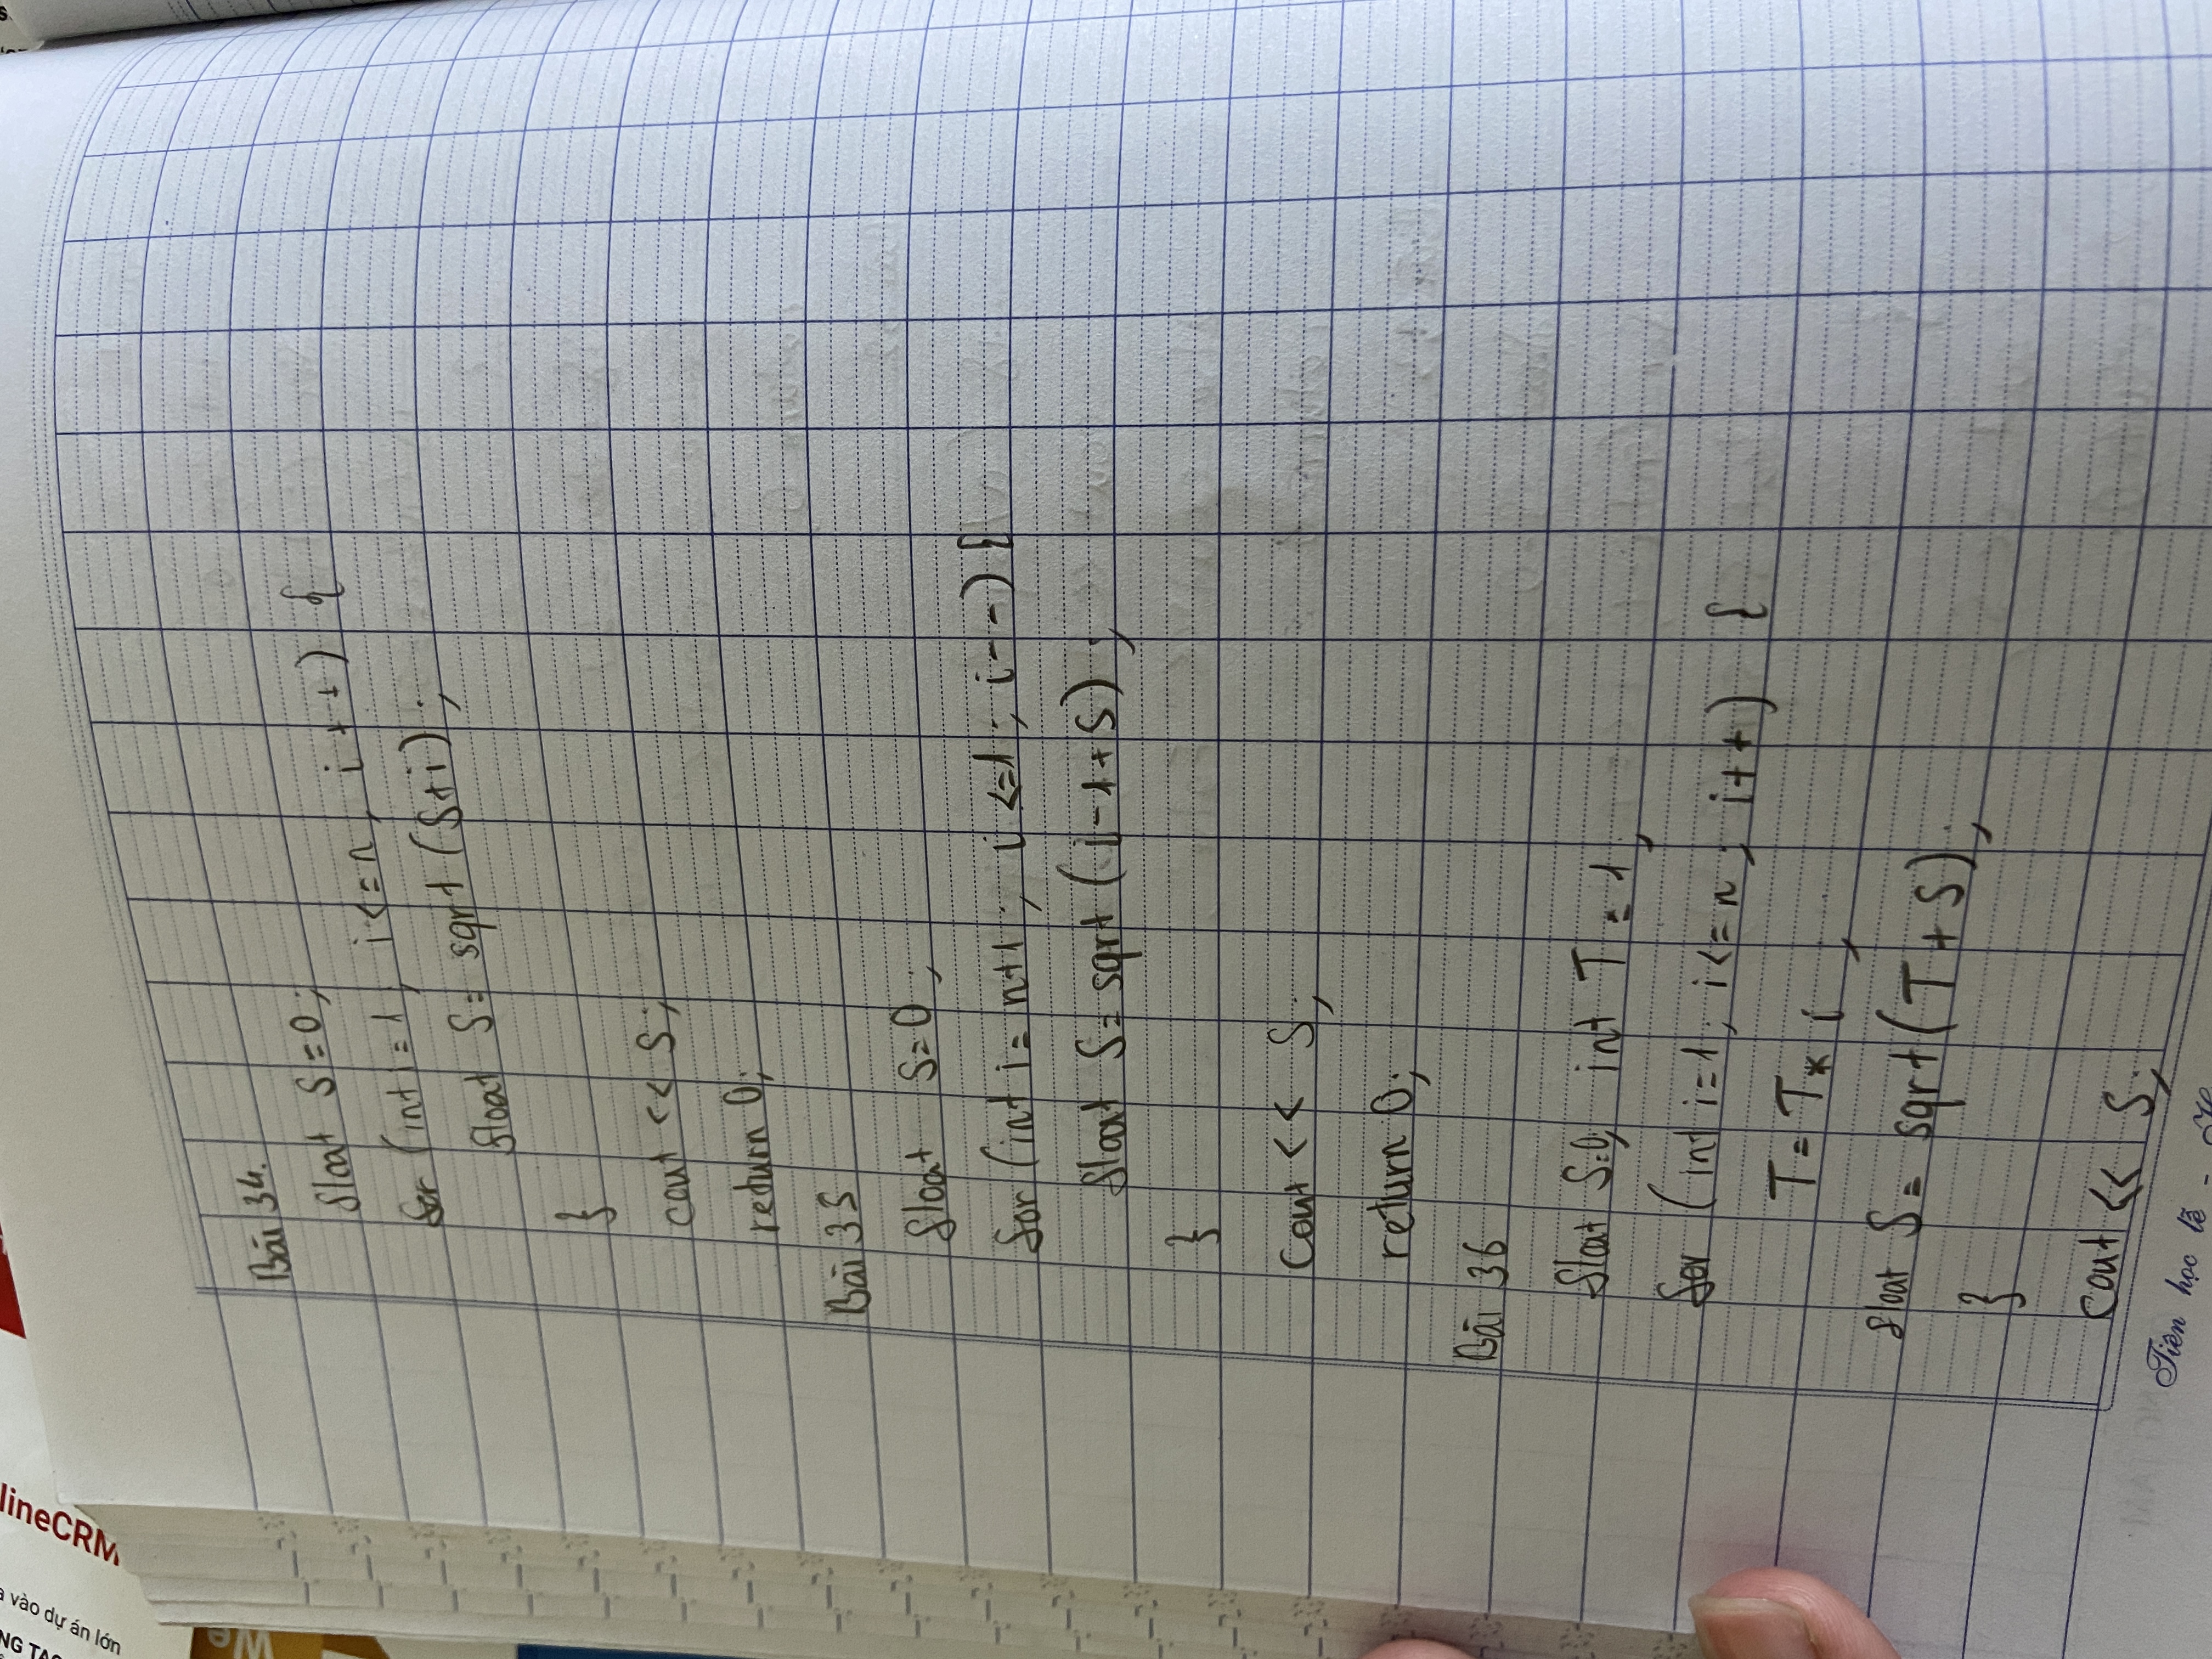 Bài 34.
float S=0;
for (int i=1; i<=n; i++) {
float S= sqrt(S+i);
}
cout << S;
return 0;
Bài 35
float S=0;
for (int i= n+1; i<=1; i--) {
float S= sqrt (i-1+S);
}
cout << S;
return 0;
Bài 36
float S=0; int T=1;
for (int i=1; i<=n; i++) {
T=T*i;
float S= sqrt(T+S);
}
cout << S;
Tiên học lễ -
We
vào dự án lớn
lineCRM